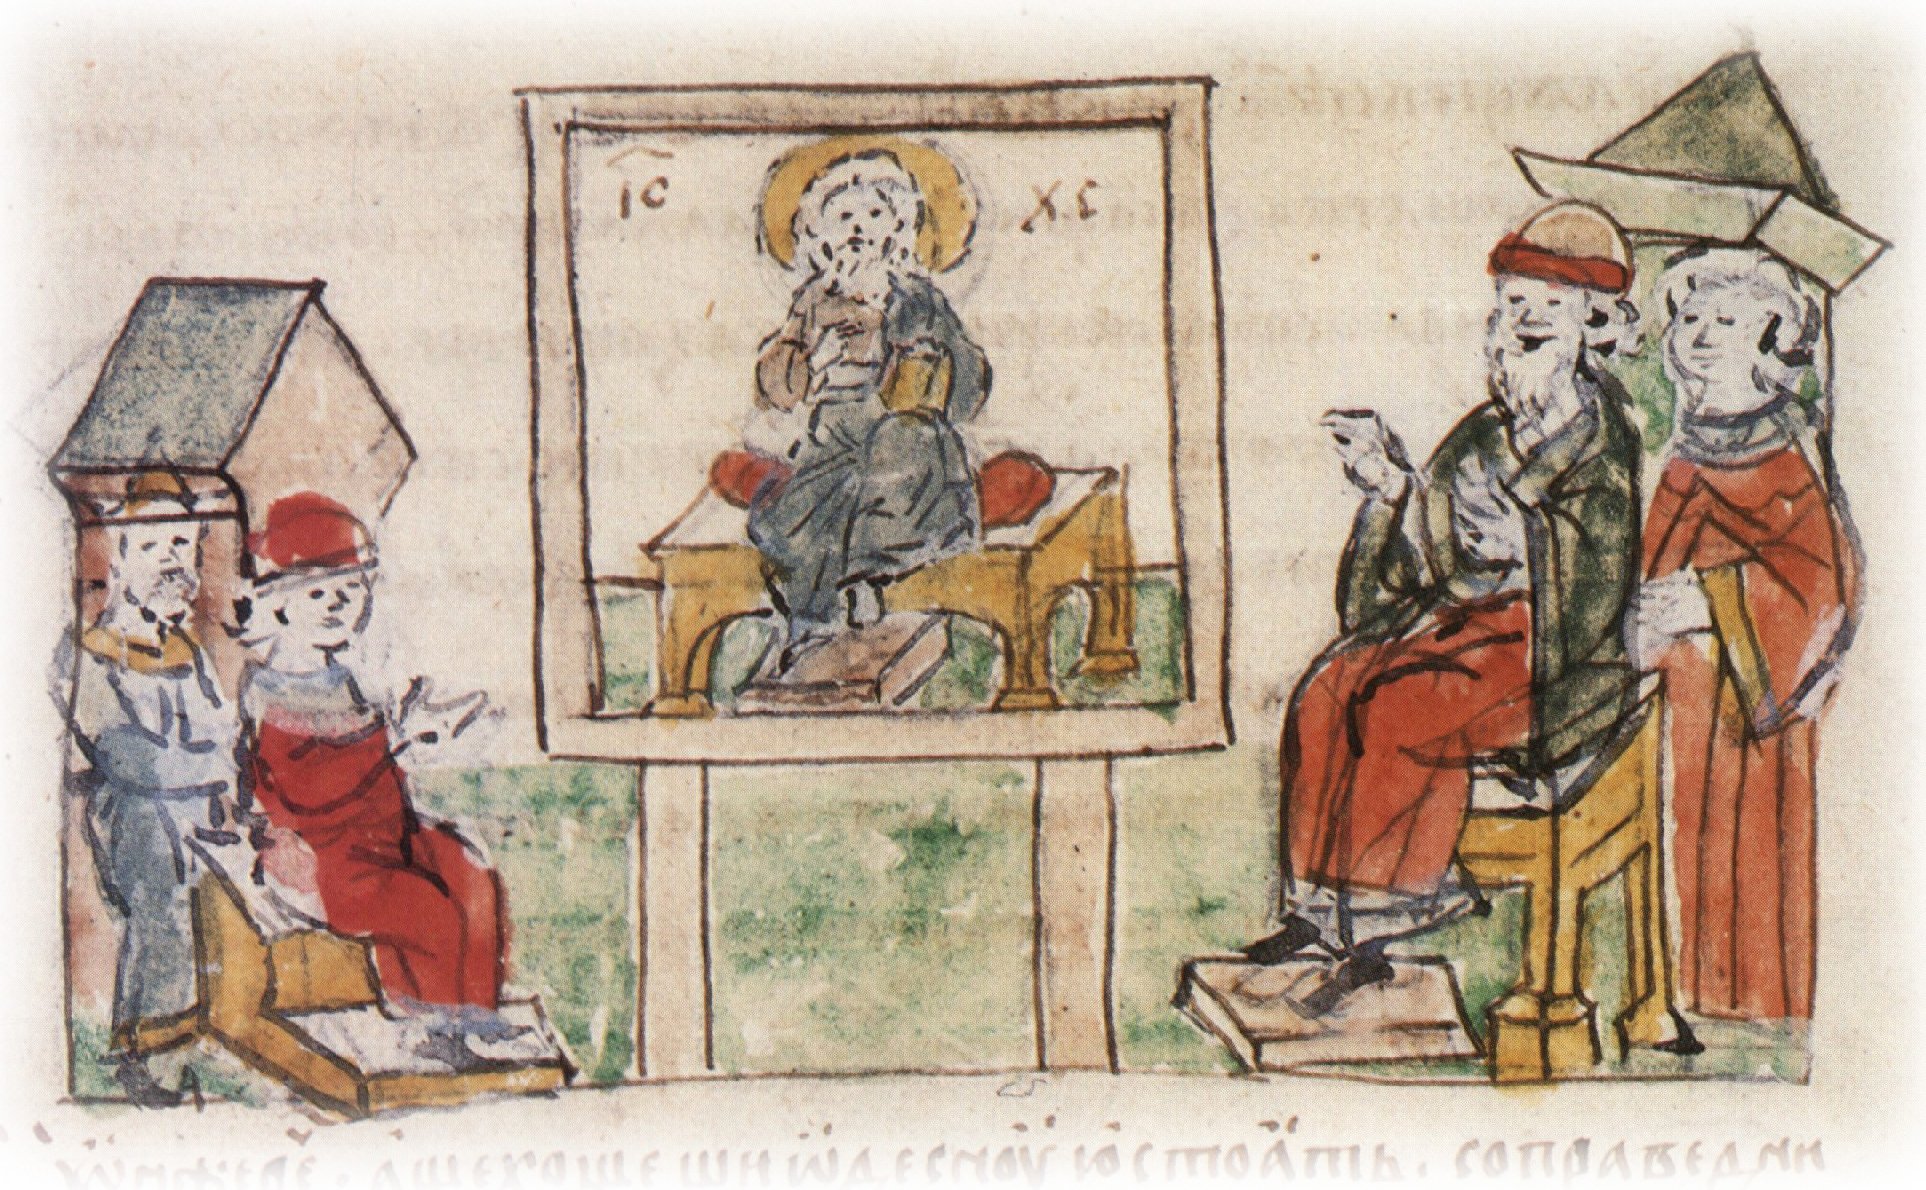 І͠С ХС
аще хощеши ѡдесноую стоѧть. со праведни